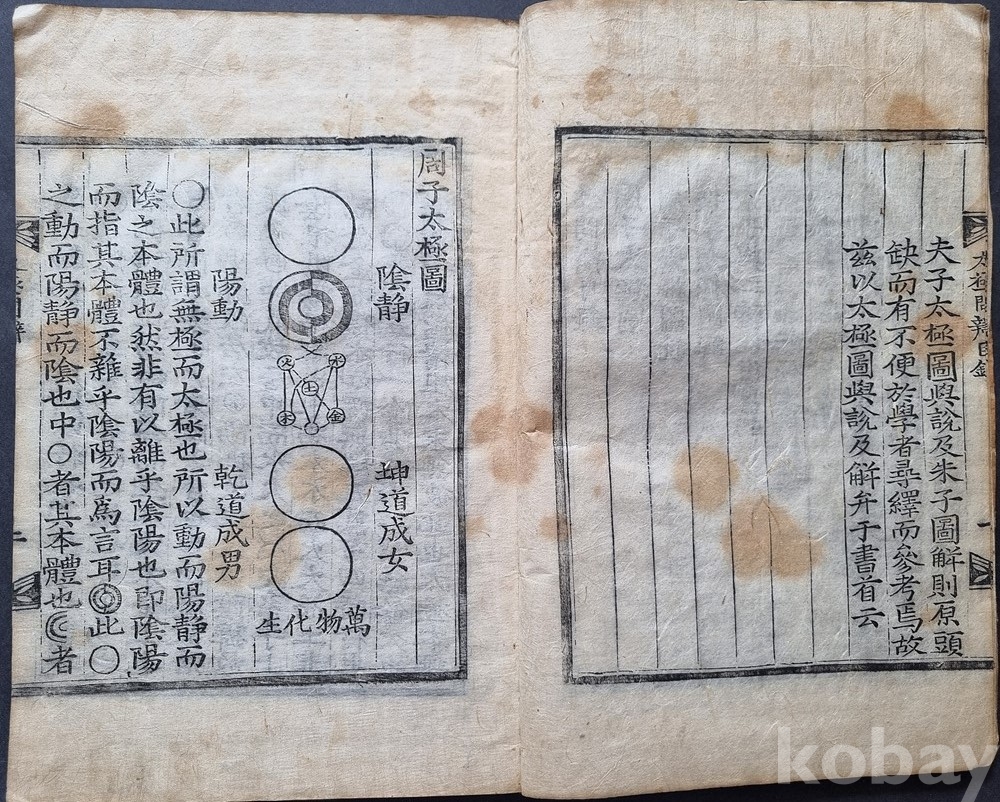 太極問辨目錄
一
夫子太極圖與說及朱子圖解則原頭
缺而有不便於學者尋繹而參考焉故
玆以太極圖與說及解弁于書首云
周子太極圖
陰静
坤道成女
火
水
土
木
金
萬物化生
陽動
乾道成男
〇此所謂無極而太極也所以動而陽静而
陰之本體也然非有以離乎陰陽也即陰陽
而指其本體不雜乎陰陽而爲言耳此〇
之動而陽静而陰也中〇者其本體也者
二
kobay